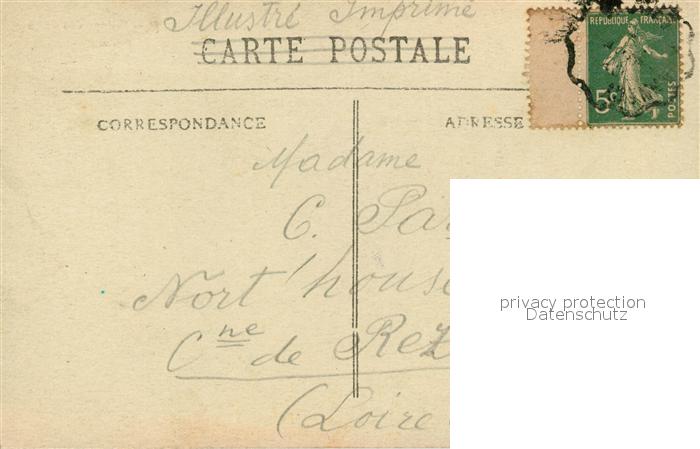 Illustré Imprimé
CARTE POSTALE
REPUBLIQUE FRANÇAISE
5c
POSTES
CORRESPONDANCE
ADRESSE
Madame
C.
Nort'house
Cne de Rez
(Loire
privacy protection
Datenschutz